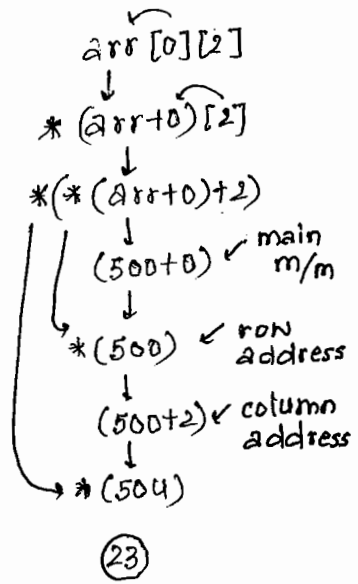 arr[0][2]
*(arr+0)[2]
*(*(arr+0)+2)
(500+0) main m/m
*(500) row address
(500+2) column address
*(504)
23